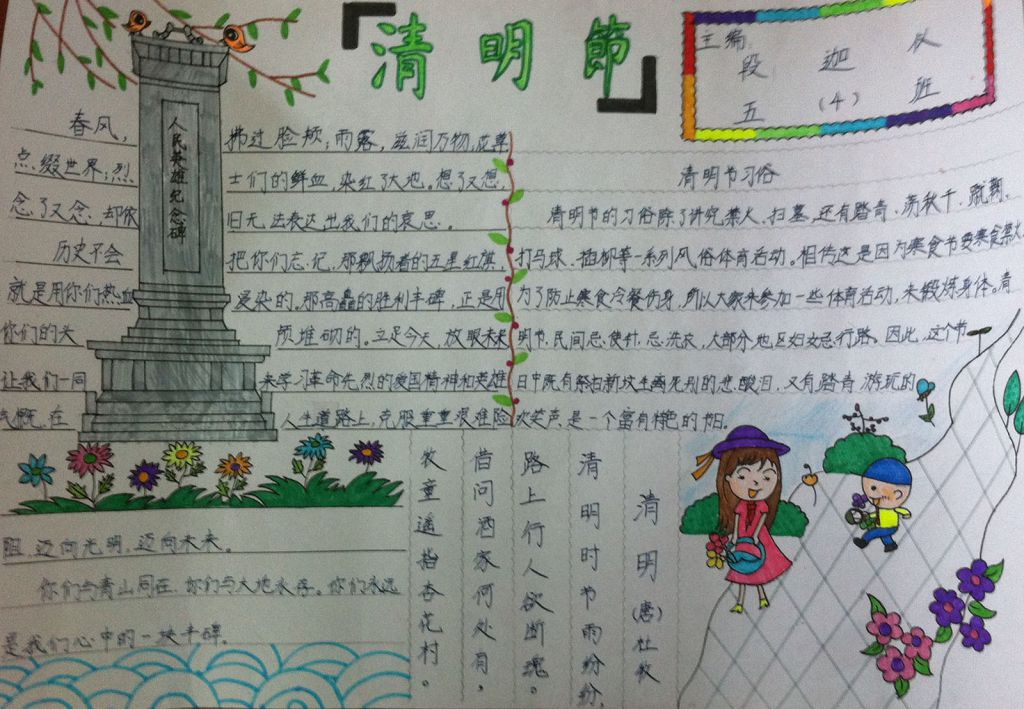 清明節
主编
段迦从
五(4)班
人民英雄纪念碑
春风,拂过脸颊;雨露,滋润万物,
点缀世界;烈士们的鲜血,染红了大地。想了又想,
念了又念,却依旧无法表达出我们的哀思。
历史不会把你们忘记,那飘扬着的五星红旗,
就是用你们热血染的。那高矗的胜利丰碑,正是用
你们的头颅堆砌的。立足今天,放眼未来
让我们一同来学习革命先烈的爱国精神和英雄
气概,在人生道路上,克服重重艰难险
阻,迈向光明,迈向未来。
你们与青山同在,你们与大地永存。你们永远
是我们心中的一块丰碑。
清明节习俗
清明节的习俗除了讲究禁火、扫墓,还有踏青、荡秋千、蹴鞠、
打马球、插柳等一系列风俗体育活动。相传这是因为寒食节要寒食禁火
为了防止寒食冷餐伤身,所以大家来参加一些体育活动,来锻炼身体。清
明节,民间忌使针,忌洗衣,大部分地区妇女忌行路。因此,这个节
日中既有祭扫新坟生离死别的悲酸泪,又有踏青游玩的
欢笑声,是一个富有特色的节日。
清明
(唐)杜牧
清明时节雨纷纷,
路上行人欲断魂。
借问酒家何处有,
牧童遥指杏花村。